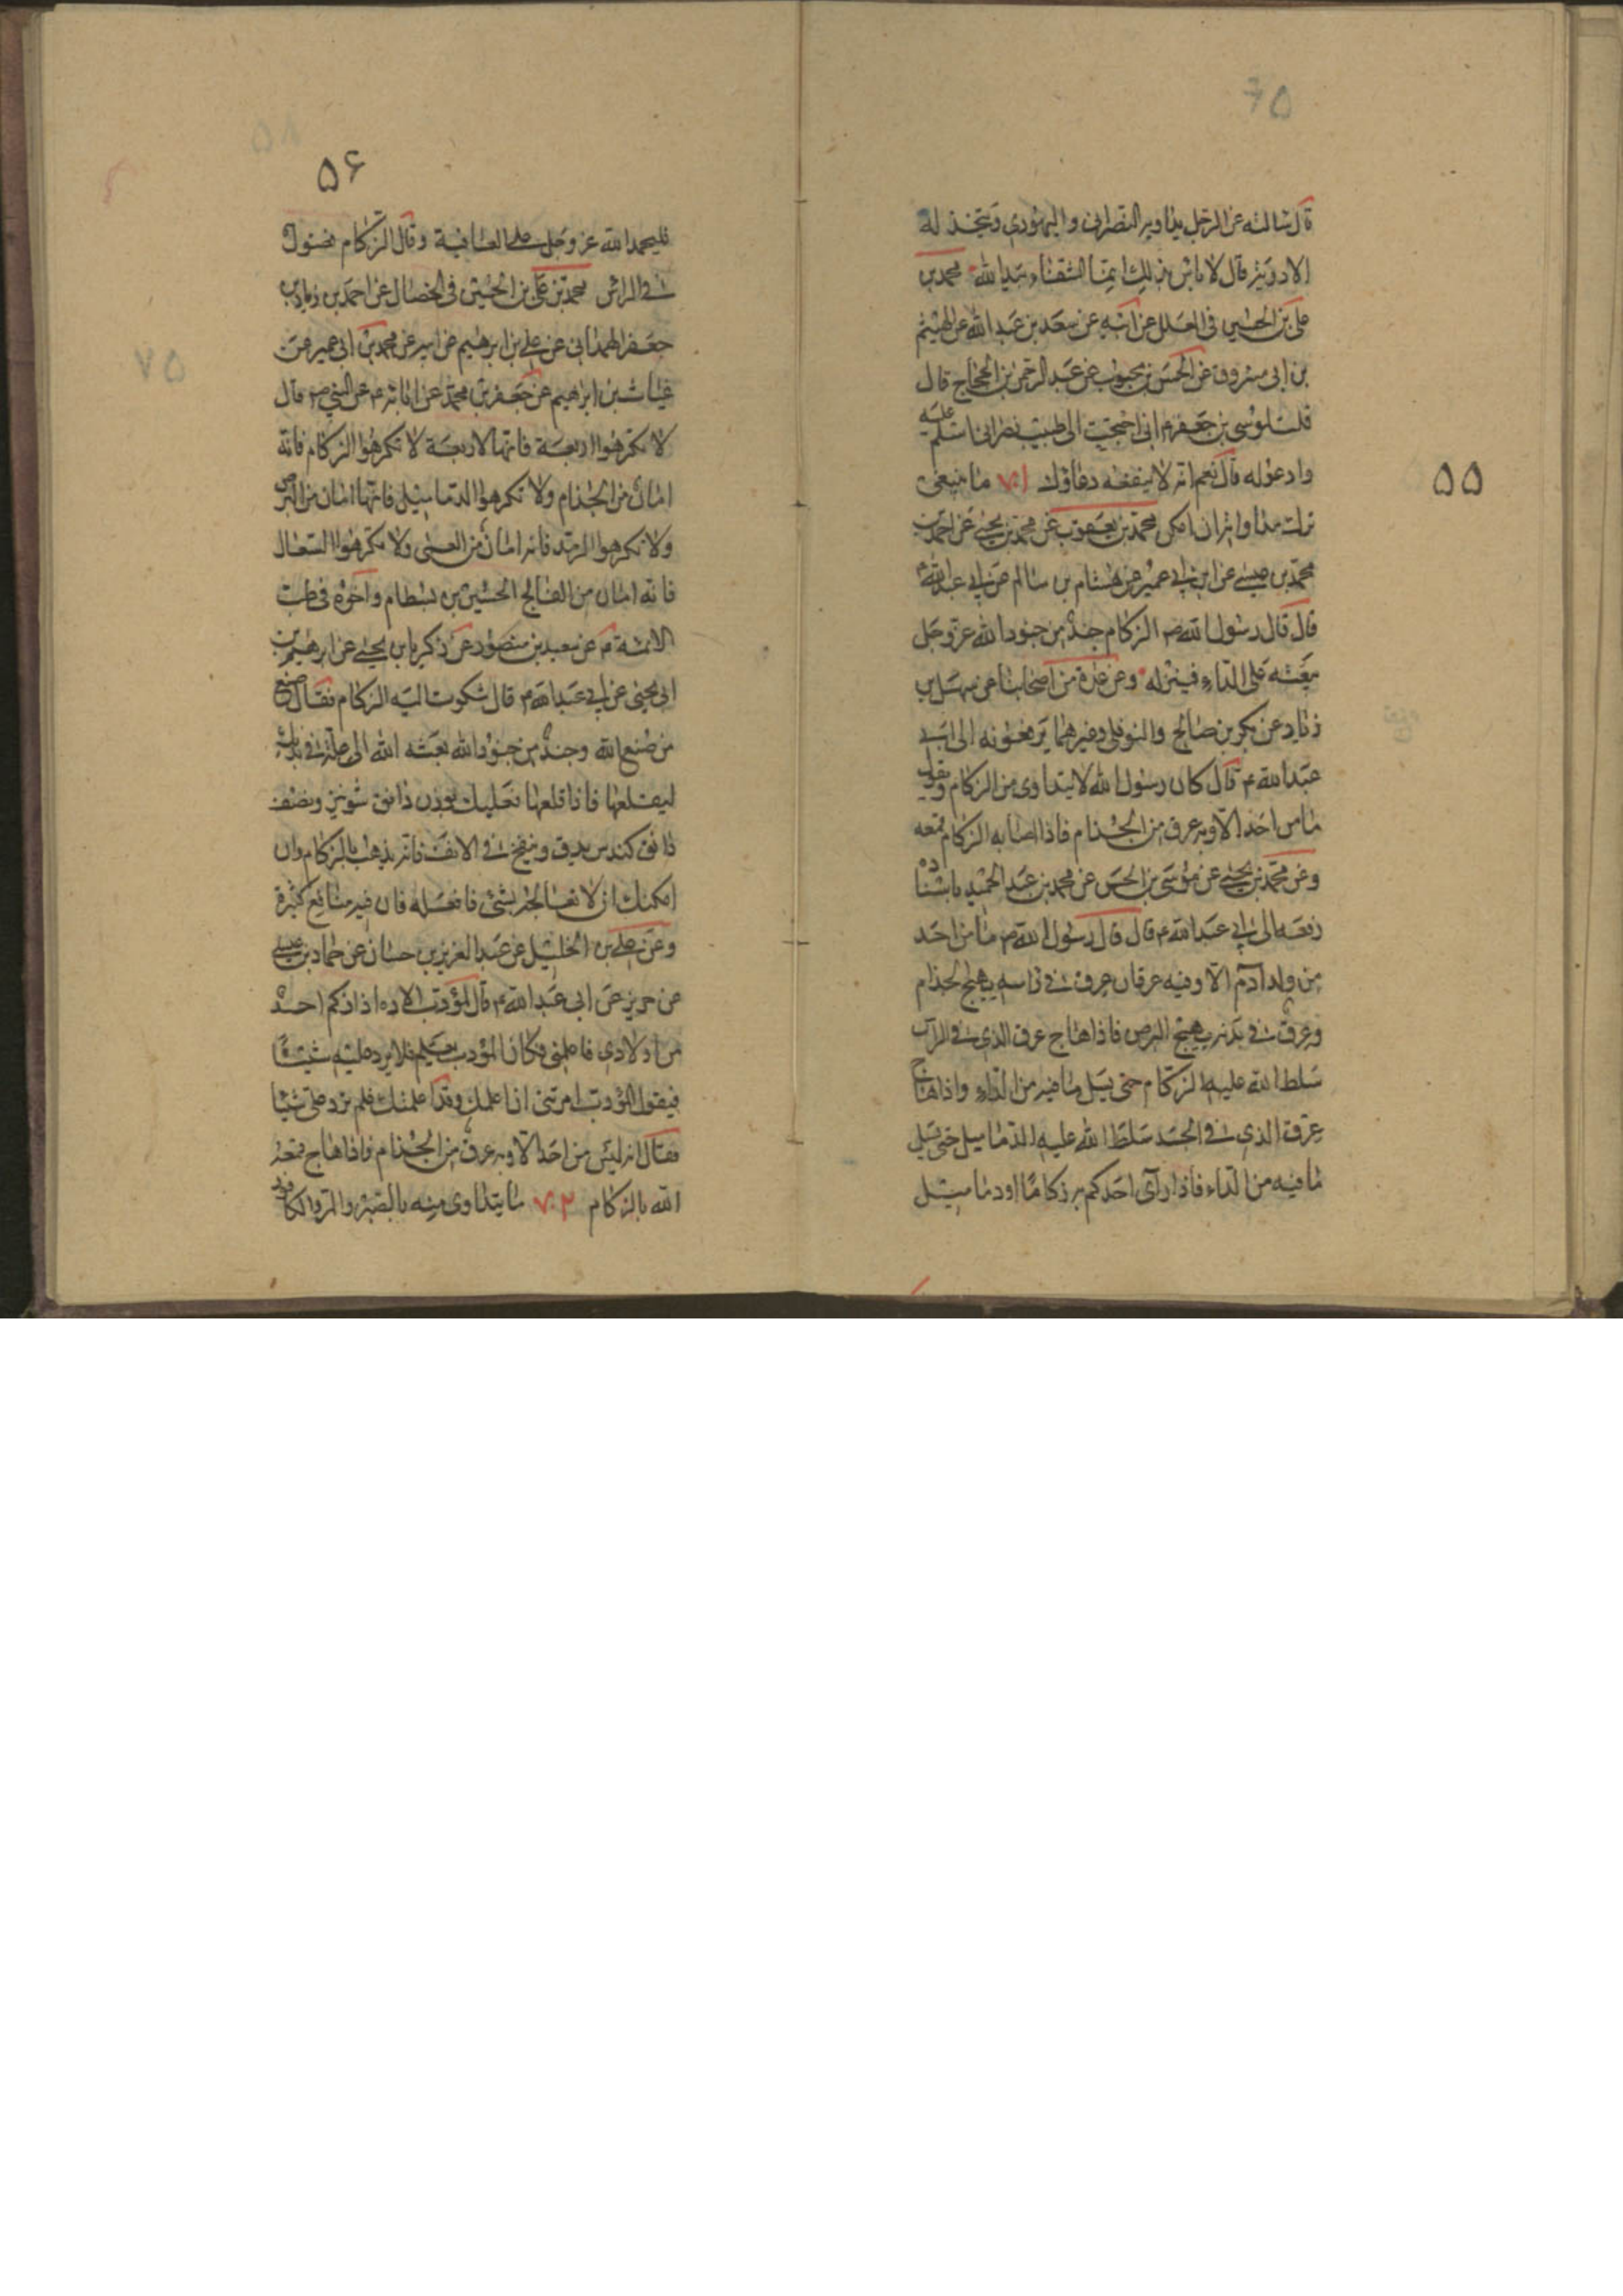 ۵۵
قال سالته عن الرجل يداويه النصراني واليهودي ويتخذ له
الادوية قال لا باس بذلك انما الشفاء بيد الله محمد بن
علي بن الحسين في العلل عن ابيه عن سعد بن عبد الله عن الهيثم
بن ابي مسروق عن الحسن بن محبوب عن عبد الرحمن بن الحجاج قال
قلت لموسى بن جعفر ع اني احتجت الى طبيب نصراني اسلم عليه
وادعو له قال نعم انه لا ينفعه دعاؤك ۷۰۱ ما ينبغي
ترك مداواته ان امكن محمد بن يعقوب عن محمد بن يحيى عن احمد بن
محمد بن عيسى عن ابن ابي عمير عن هشام بن سالم عن ابي عبد الله ع
قال قال رسول الله ص الزكام جند من جنود الله عز وجل
يبعثه على الداء فينزله وعن عدة من اصحابنا عن سهل بن
زياد عن بكر بن صالح والنوفلي وغيرهما يرفعونه الى ابي
عبد الله ع قال كان رسول الله لا يتداوى من الزكام ويقول
ما من احد الا وبه عرق من الجذام فاذا اصابه الزكام قمعه
وعن محمد بن يحيى عن موسى بن الحسن عن محمد بن عبد الحميد باسناده
رفعه الى ابي عبد الله ع قال قال رسول الله ص ما من احد
من ولد ادم الا وفيه عرقان عرق في راسه يهيج الجذام
وعرق في بدنه يهيج البرص فاذا هاج عرق الذي في الراس
سلط الله عليه الزكام حتى يسل ما فيه من الداء واذا هاج
عرق الذي في الجسد سلط الله عليه الدماميل حتى يسيل
ما فيه من الداء فاذا رآى احدكم به زكاما او دماميل
۵۶
فليحمد الله عز وجل على العافية وقال الزكام فضول
في الراس محمد بن علي بن الحسين في الخصال عن احمد بن زياد بن
جعفر الهمداني عن علي بن ابرهيم عن ابيه عن محمد بن ابي عمير عن
غياث بن ابرهيم عن جعفر بن محمد عن ابائه ع عن النبي ص قال
لا تكرهوا اربعة فانها لاربعة لا تكرهوا الزكام فانه
امان من الجذام ولا تكرهوا الدماميل فانها امان من البرص
ولا تكرهوا الرمد فانه امان من العمى ولا تكرهوا السعال
فانه امان من الفالج الحسين بن بسطام واخوه في طب
الائمة ع عن سعيد بن منصور عن زكريا بن يحيى عن ابرهيم بن
ابي يحيى عن ابي عبد الله ع قال شكوت اليه الزكام فقال صنع
من صنع الله وجند من جنود الله بعثه الله الى علة في بدنك
ليقلعها فاذا قلعها فعليك بوزن دانق شونيز ونصف
دانق كندس يدق وينفخ في الانف فانه يذهب بالزكام وان
امكنك ان لا تعالجه بشئ فافعله فان فيه منافع كثيرة
وعن علي بن الخليل عن عبد العزيز بن حسان عن حماد بن عيسى
عن حريز عن ابي عبد الله ع قال لمؤدب اولاده اذا زكم احد
من اولادي فاعلمني فكان المؤدب يعلم فلا يرد عليه شيئا
فيقول المؤدب امرتني ان اعلمك وقد اعلمتك فلم ترد علي شيئا
فقال انه ليس من احد الا وبه عرق من الجذام فاذا هاج قمعه
الله بالزكام ۷۰۲ ما يتداوى منه بالصبر والمر والكافور